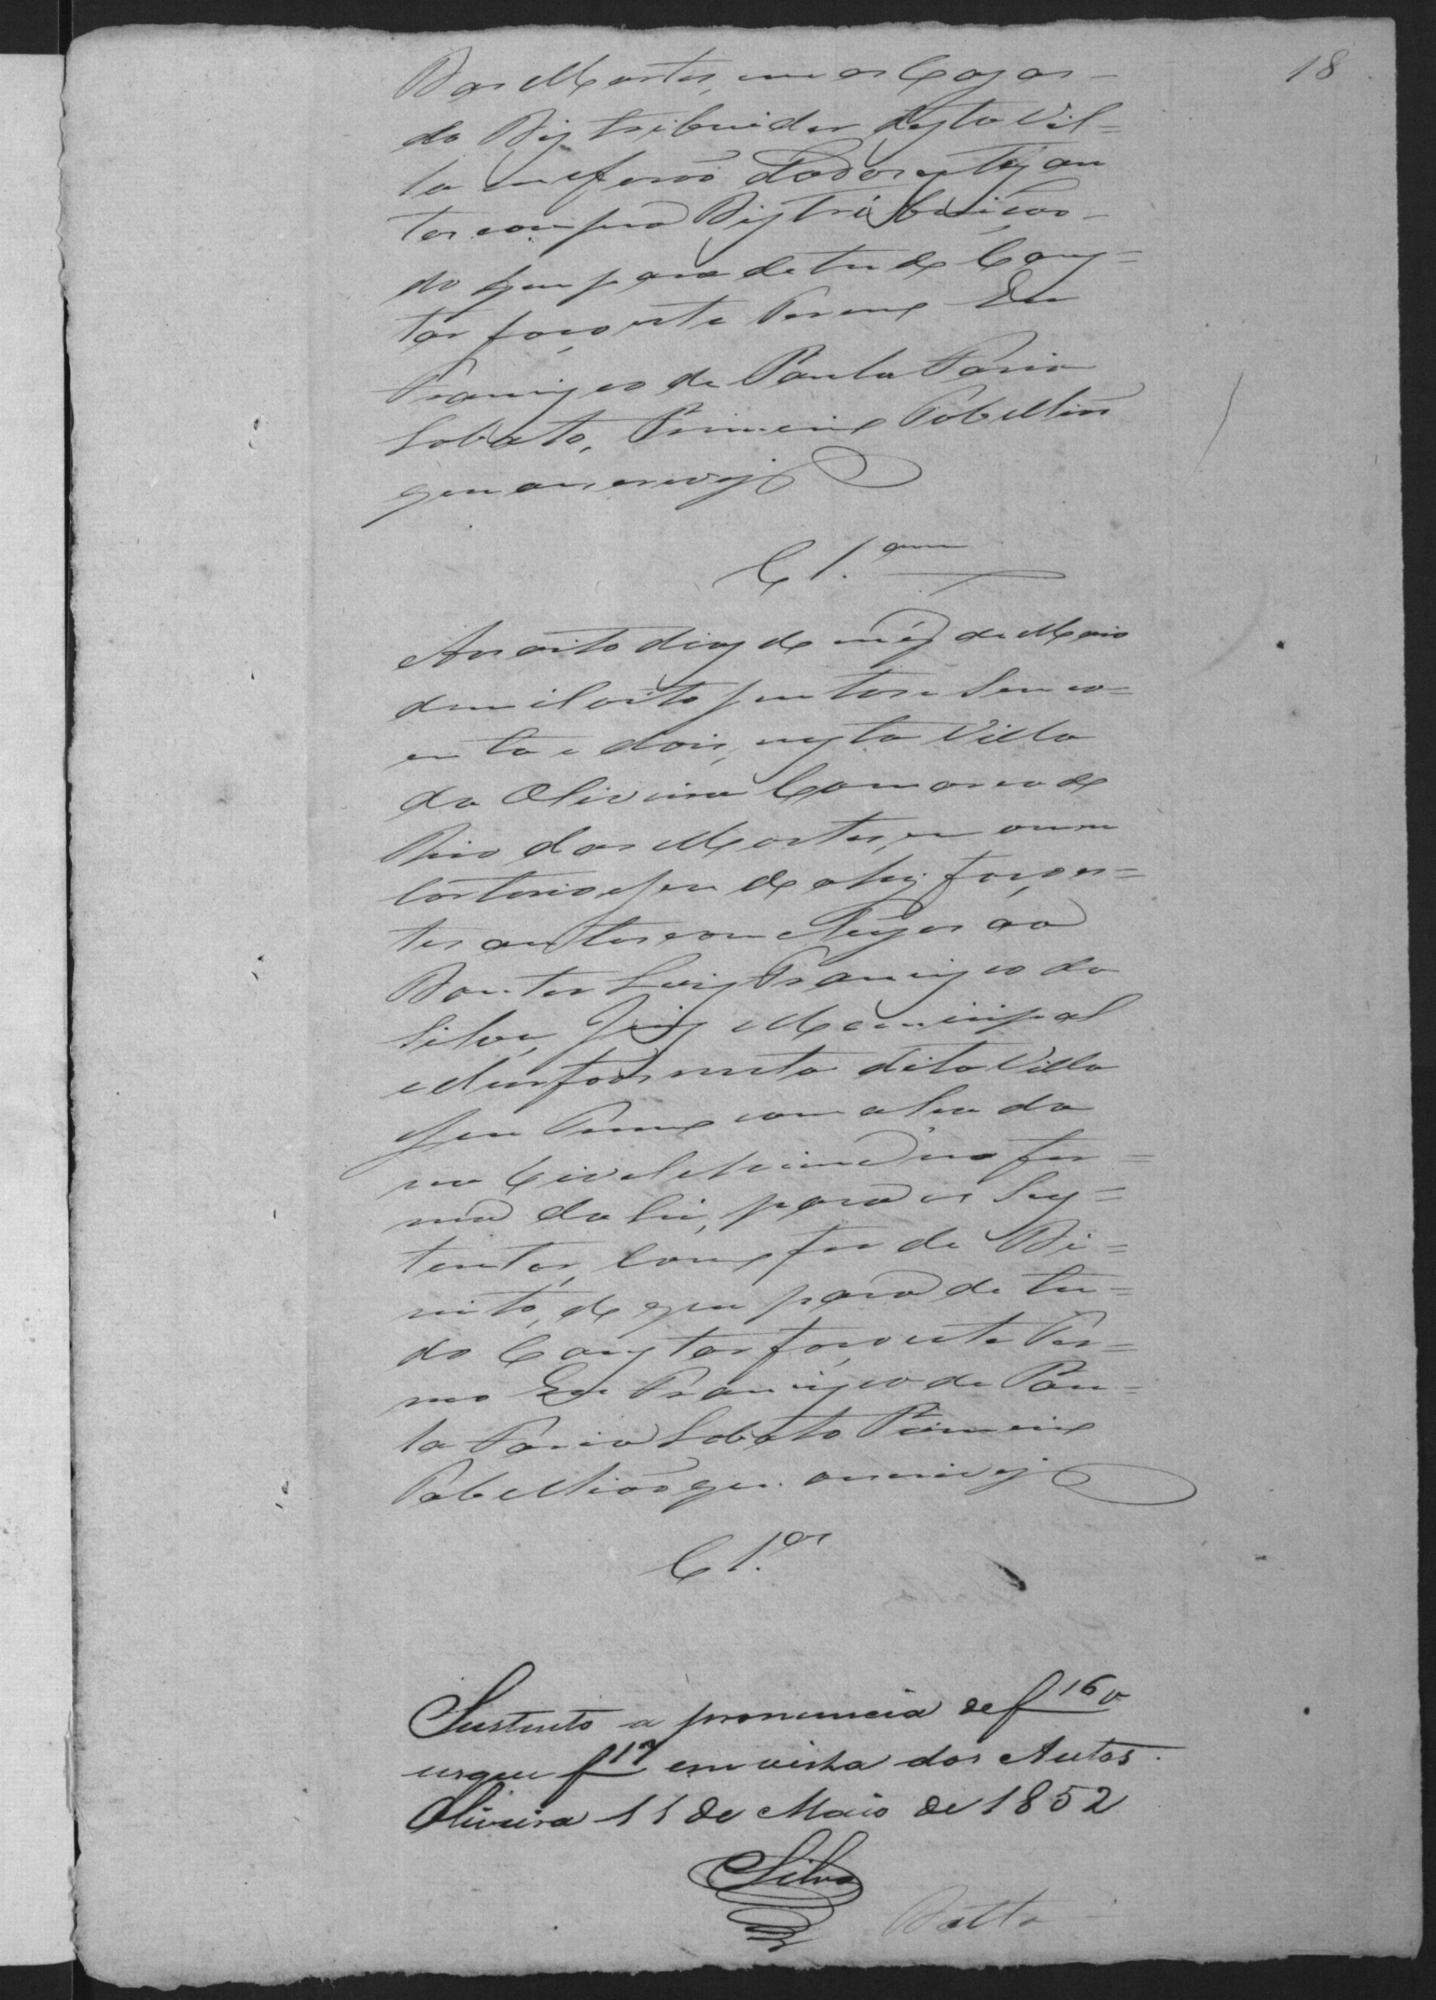 18
Das Mortes, em as Cazas
do Destribuidor desta Vil=
la me forão dados estes au
tos com sua Distribuição
do que para de tudo Cons=
tar faço este Termo Eu
Francisco de Paula Faria
Lobato, Primeiro Tabellião
que o escrevy
Cl.am
Aos oito dias do mez de Maio
de mil oito sentos e Sinco=
enta e dois, nesta Villa
da Oliveira Comarca do
Rio das Mortes, em o meu
Cartorio e sendo ahy faço es=
tes autos conclusos ao
Doutor Luiz Francisco da
Silva, Juiz Municipal
e de orfaos nesta dita Villa
seu Termo com alsada
no Civel e Crime na for=
ma da Lei, para os Sus=
tentar, como for de Di=
reito, do que para de tu=
do Constar faço este Ter=
mo Eu Francisco de Pau=
la Faria Lobato Primeiro
Tabellião que o escrevy
Cl.os
Sustento a pronuncia de f 16 v
usque f 17 em vista dos Autos.
Oliveira 11 de Maio de 1852
Silva
Datta